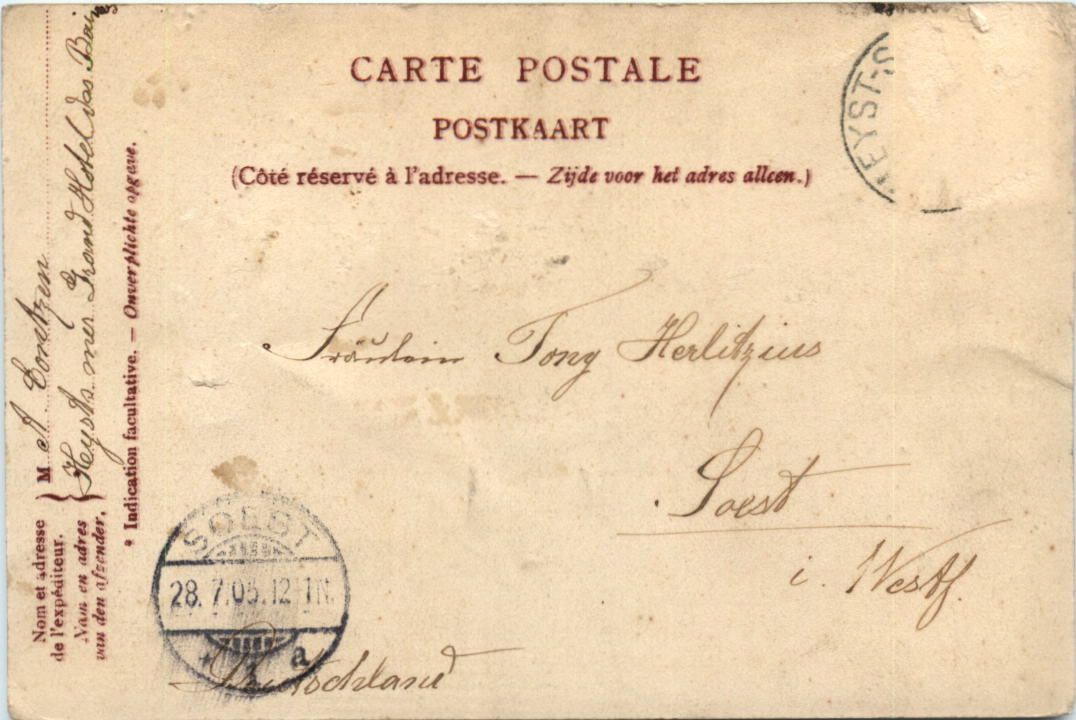 CARTE POSTALE
POSTKAART
(Côté réservé à l'adresse. — Zijde voor het adres alleen.)
EYST
Fräulein Tony Herlitzius
Soest
i. Westf.
Deutschland
SOEST
28. 7.05. 12-1N.
* a
Nom et adresse
de l'expéditeur.
Nam en adres
van den afzender.
M A.
Heyst s. mer Grand Hotel des Bains
* Indication facultative. — Onverplichte opgave.